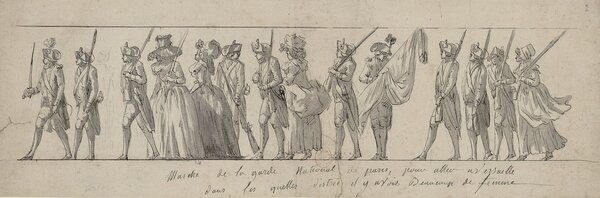 Marche de la garde National de paris, pour aller a versaille
dans les quelles district il y avoit Beaucoup de femme